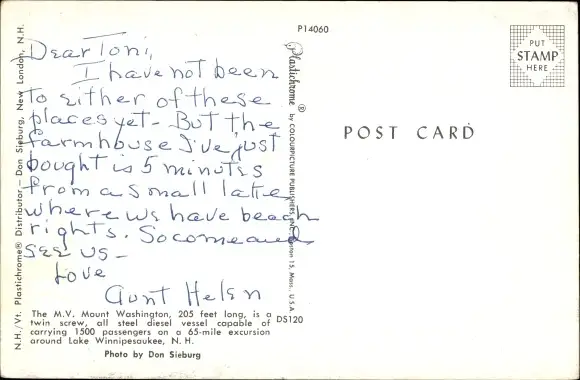 P14060
PUT
STAMP
HERE
POST CARD
Dear Toni,
I have not been
to either of these
places yet - But the
farmhouse I've just
bought is 5 minutes
from a small lake
where we have beach
rights. So come and
see us -
Love
Aunt Helen
The M.V. Mount Washington, 205 feet long, is a
twin screw, all steel diesel vessel capable of
carrying 1500 passengers on a 65-mile excursion
around Lake Winnipesaukee, N. H.
Photo by Don Sieburg
DS120
N.H./Vt. Plastichrome® Distributor — Don Sieburg, New London, N.H.
Plastichrome ® by COLOURPICTURE PUBLISHERS, INC., Boston 15, Mass., U.S.A.